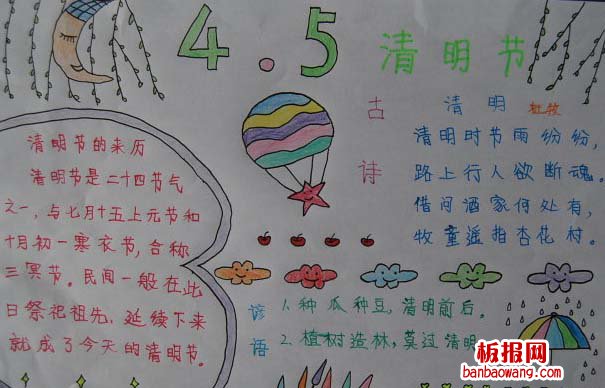 4.5 清明节
清明节的来历
清明节是二十四节气
之一，与七月十五上元节和
十月初一寒衣节，合称
三冥节。民间一般在此
日祭祀祖先，延续下来
就成了今天的清明节。
古诗
清明 杜牧
清明时节雨纷纷，
路上行人欲断魂。
借问酒家何处有，
牧童遥指杏花村。
谚语
1.种瓜种豆，清明前后。
2.植树造林，莫过清明
板报网
banbaowang.com